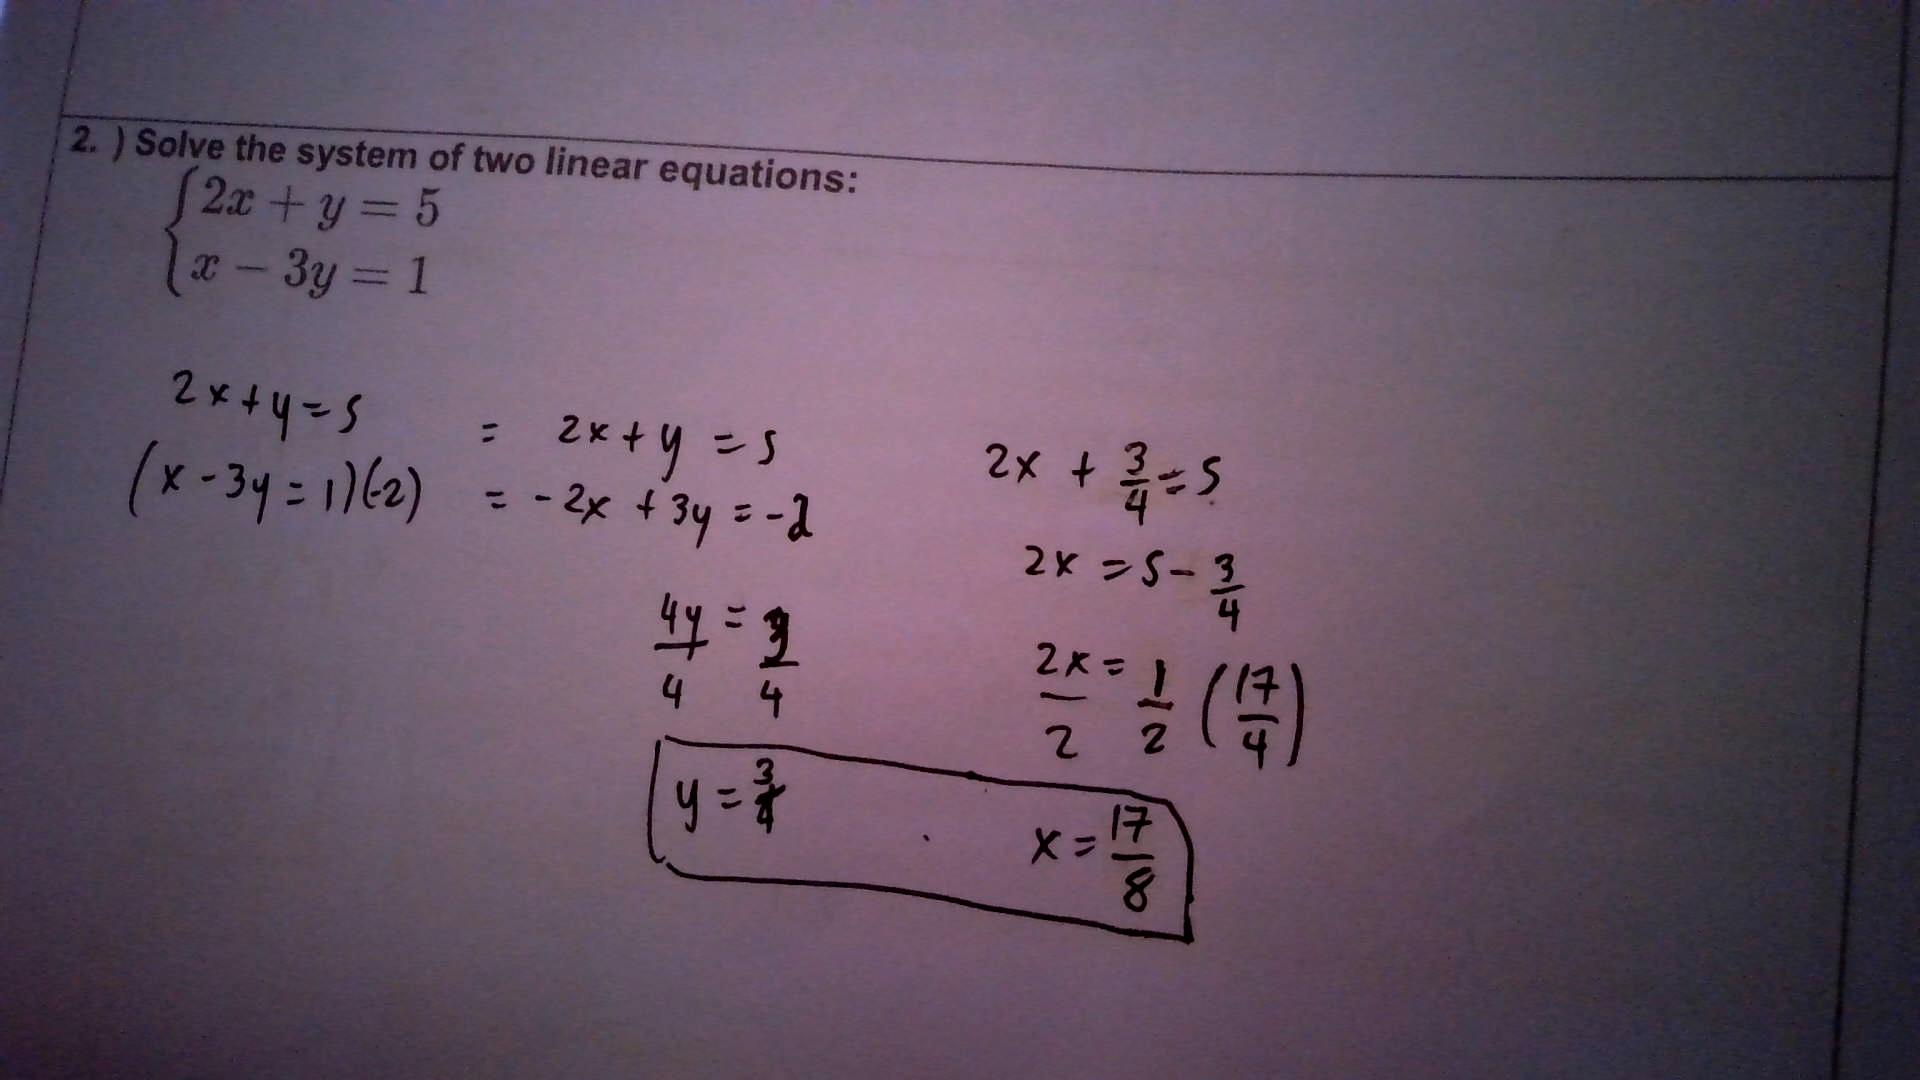 2. ) Solve the system of two linear equations:
{2x + y = 5
x − 3y = 1
2x+y=5
(x-3y=1)(-2)
= 2x+y=5
= -2x+3y=-2
4y/4 = 3/4
y=3/4
2x + 3/4=5
2x=5-3/4
2x/2=1/2(17/4)
x=17/8